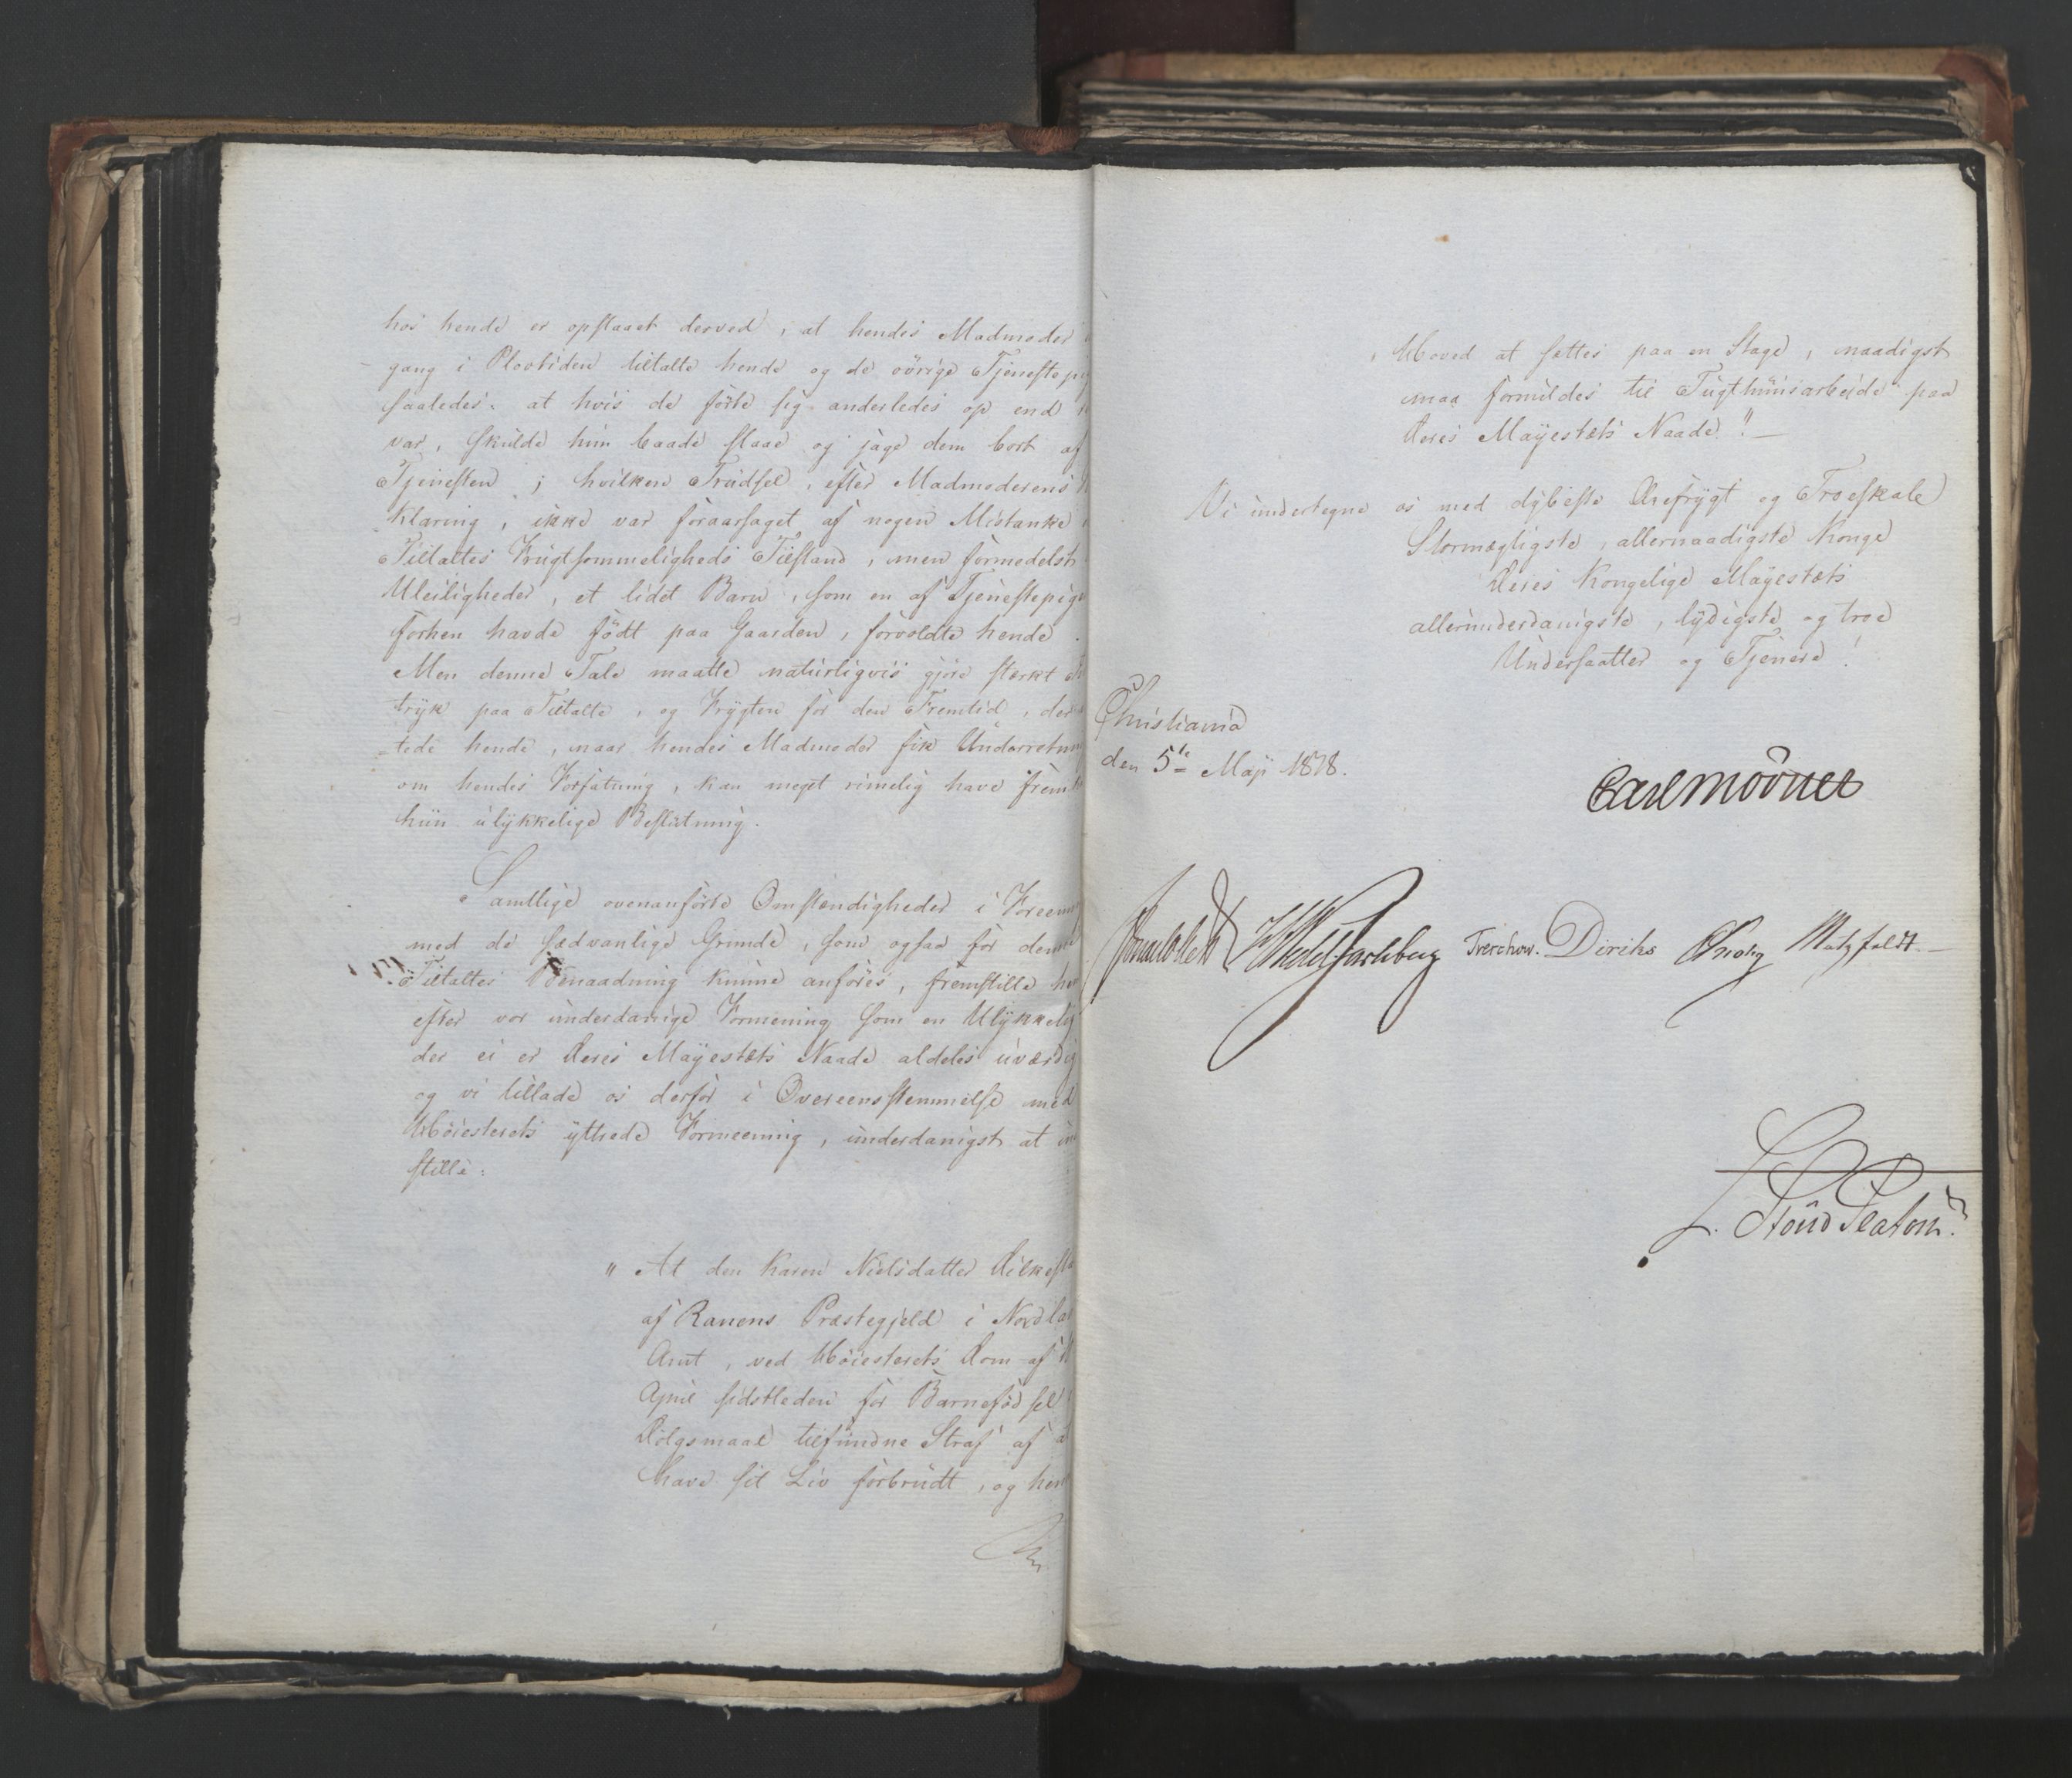 hos hende er opstaaet derved, at hendes Madmoder
gang i Plovtiden tiltalte hende og de övrige Tjenestepi
saaledes: at hvis de förte sig anderledes op end
var, skulde hun baade slaae og jage dem bort af
Tjenesten; hvilken Trudsel, efter Madmoderens
klaring, ikke var foraarsaget af nogen Mistanke
Tiltaltes Frugtsommeligheds Tilstand, men formedelst
Uleiligheder, et lidet Barn, som en af Tjenestepige
forhen havde födt paa Gaarden, forvoldte hende.
Men denne Tale maatte naturligviis gjöre stærkt
tryk paa Tiltalte, og Frygten for den Fremtid, der
-tede hende, naar hendes Madmoder fik Underretnin
om hendes Forfatning, kan meget rimelig have frem
hiin ulykkelige Beslutning.
Samtlige ovenanförte Omstændigheder i Foreen
med de sædvanlige Grunde, som ogsaa for denne
Tiltaltes Benaadning kunne anföres, fremstille he
efter vor underdanige Formening som en Ulykkelig
der ei er Deres Mayestæts Naade aldeles uværdig
og vi tillade os derfor i Overeensstemmelse med
Höiesterets yttrede Formeening, underdanigst at in
stille:
" At den Karen Nielsdatter
af Ranens Præstegjeld i Nordla
Amt, ved Höiesterets Dom af
April sidstleden for Barnefödsel
Dölgsmaal tilfundne Straf af a
have sit Liv forbrudt, og hen
Hoved at settes paa en Stage, naadigst
maa formildes til Tugthuusarbeide paa
Deres Mayestæts Naade!" —
Vi undertegne os med dybeste Ærefrygt og Troeskab
Stormægtigste, allernaadigste Konge
Deres Kongelige Mayestæts
allerunderdanigste, lydigste og troe
Undersaatter og Tjenere!
Christiania
den 5te Maji 1818.
Carl Mörner
Wedel Jarlsberg Treschow. Diriks Krohg Motzfeldt.